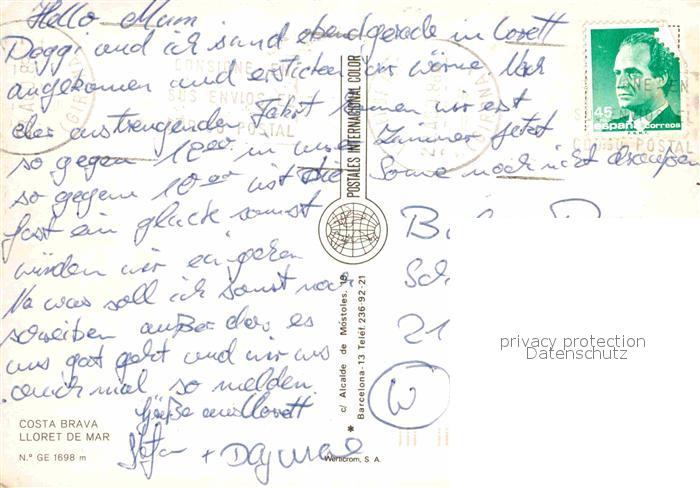 Hello Mum
Doggi und ich sind ebend gerade in Lorett
angekommen und ersticken vor wärme Nach
der anstrengenden Fahrt kamen wir erst
so gegen 12 00 in unser Zimmer Jetzt
so gegen 10 00 ist die Sonne noch nicht
fast ein glück sonst
würden wir eingehen
Na was soll ich sonst noch
schreiben außer das es
uns gut geht und wir uns
auch mal so melden
Grüße aus Lorett
+ Dagmar
COSTA BRAVA
LLORET DE MAR
N.º GE 1698 m
POSTALES INTERNACIONAL COLOR
c/ Alcalde de Móstoles, 19
Barcelona-13 Teléf. 236-92-21
Werticrom, S. A.
45
españa correos
CONSIGNE EN
SUS ENVIOS EL
CODIGO POSTAL
(GIRONA)
B
Sc
21
W
privacy protection
Datenschutz